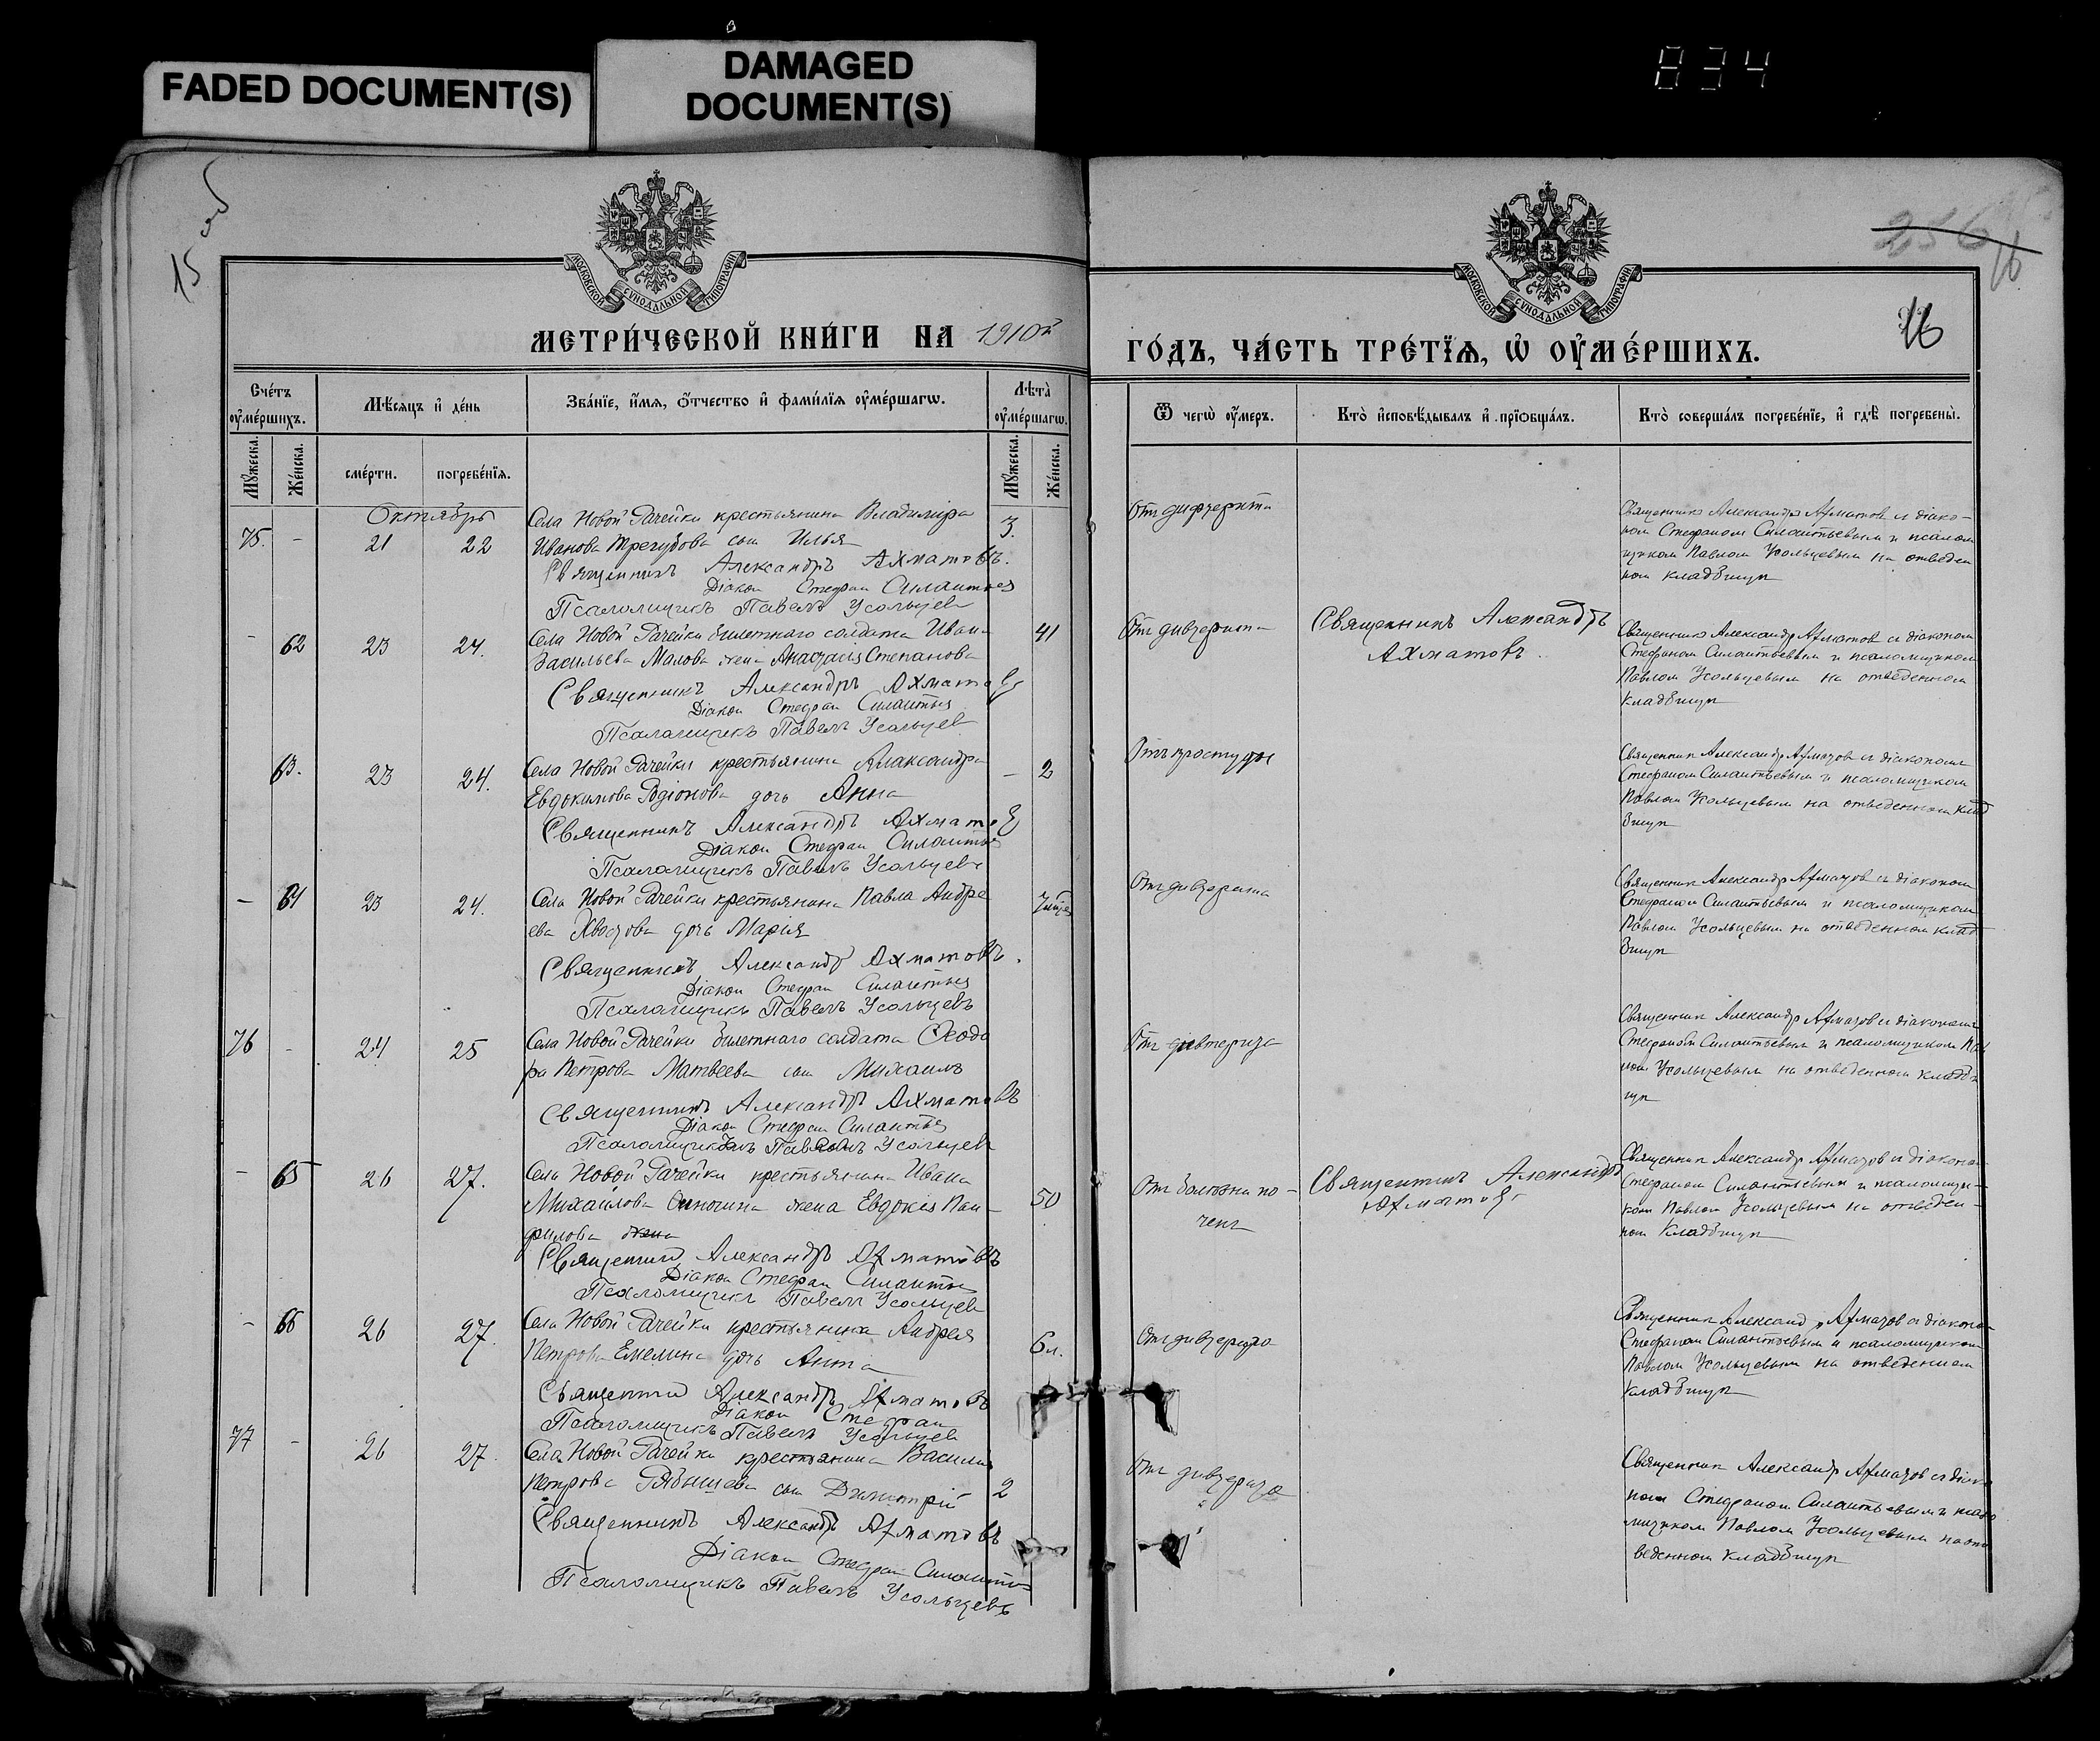 FADED DOCUMENT(S)
DAMAGED
DOCUMENT(S)
834
15
256
16
16
МОСКОВСКОЙ СѴНОДАЛЬНОЙ ТИПОГРАФІИ
МОСКОВСКОЙ СѴНОДАЛЬНОЙ ТИПОГРАФІИ
МЕТРИ́ЧЕСКОЙ КНИ́ГИ НА 1910й
ГО́ДЪ, ЧА́СТЬ ТРЕ́ТЇѦ, Ѡ҆ ОУ҆МЕ́РШИХЪ.
Сче́тъ оу҆ме́ршихъ.
Мѣ́сяцъ и҆ де́нь
Зва́нїе, и҆́мя, ѻ҆́тчество и҆ фами́лїя оу҆ме́ршагѡ.
Лѣ́та оу҆ме́ршагѡ.
Ѿ чегѡ̀ оу҆́меръ.
Кто̀ и҆сповѣ́дывалъ и҆ прїѡбща́лъ.
Кто̀ соверша́лъ погребе́нїе, и҆ гдѣ̀ погребены̀.
Мꙋ́жеска.
Же́нска.
сме́рти.
погребе́нїя.
Мꙋ́жеска.
Же́нска.
Октябрь
75. - 21 22
Села Новой Рачейки крестьянина Владимира
Иванова Трегубова сын Илья
3.
Священникъ Александръ Ахматовъ.
Діакон Стефан Силантьев
Псаломщикъ Павелъ Усольцев
От дифтерита
Священник Александр Ахматов с діако-
ном Стефаном Силантьевым и псалом
щиком Павлом Усольцевым на отведен
ном кладбищѣ
- 62 23 24.
Села Новой Рачейки билетнаго солдата Ивана
Васильева Малова жена Анастасія Степанова
41
Священникъ Александръ Ахматовъ
Діакон Стефан Силантьев
Псаломщикъ Павелъ Усольцев
От дивтерита
Священникъ Александръ
Ахматовъ.
Священник Александр Ахматов с діаконом
Стефаном Силантьевым и псаломщиком
Павлом Усольцевым на отведенном
кладбищѣ
63. 23 24.
Села Новой Рачейки крестьянина Александра
Евдокимова Родіонова дочь Анна
- 2
Священникъ Александръ Ахматовъ
Діакон Стефан Силантьев
Псаломщикъ Павелъ Усольцевъ
Отъ простуды
Священник Александр Ахматов с діаконом
Стефаном Силантьевым и псаломщиком
Павлом Усольцевым на отведенном клад
бищѣ
- 64 23 24.
Села Новой Рачейки крестьянина Павла Андре
ева Хвостова дочь Марія
Священникъ Александръ Ахматовъ.
Діакон Стефан Силантьев
Псаломщикъ Павелъ Усольцевъ
От дивтерита
Священник Александр Ахматов с діаконом
Стефаном Силантьевым и псаломщиком
Павлом Усольцевым на отведенном клад
бищѣ
76 - 24 25
Села Новой Рачейки билетнаго солдата Ѳеодо
ра Петрова Матвеева сын Михаилъ
Священникъ Александръ Ахматовъ
Діакон Стефан Силантьев
Псаломщикъ Павелъ Усольцев
От дивтерита
Священник Александр Ахматов с діаконом
Стефаном Силантьевым и псаломщиком Пав
лом Усольцевым на отведенном кладби
щѣ
- 65 26 27.
Села Новой Рачейки крестьянина Ивана
Михайлова жена Евдокія Пан-
филова жена
50
Священник Александръ Ахматовъ
Діакон Стефан Силантьев
Псаломщикъ Павелъ Усольцев
От болезни по-
чек
Священникъ Александръ
Ахматовъ
Священник Александр Ахматов с діаконом
Стефаном Силантьевым и псаломщи-
ком Павлом Усольцевым на отведен-
ном кладбищѣ
- 66 26 27.
Села Новой Рачейки крестьянина Андрея
Петрова Емелина дочь Анна
6 л.
Священник Александръ Ахматовъ
Діакон Стефан
Псаломщикъ Павелъ Усольцев
От дивтерита
Священник Александр Ахматов с діаконом
Стефаном Силантьевым и псаломщиком
Павлом Усольцевым на отведенном
кладбищѣ
77 - 26 27.
Села Новой Рачейки крестьянина Василия
Петрова сын Димитрій
2
Священникъ Александръ Ахматовъ
Діакон Стефан Силантьев
Псаломщикъ Павелъ Усольцевъ
От дивтерита
Священник Александр Ахматов с діако
ном Стефаном Силантьевым и псало
мщиком Павлом Усольцевым на от
веденном кладбищѣ